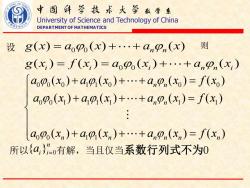 中国科学技术大学数学系
University of Science and Technology of China
DEPARTMENT OF MATHEMATICS
设 g(x) = a₀φ₀(x) + ⋯ + aₙφₙ(x) 则
g(xᵢ) = f(xᵢ) = a₀φ₀(xᵢ) + ⋯ + aₙφₙ(xᵢ)
a₀φ₀(x₀) + a₁φ₁(x₀) + ⋯ + aₙφₙ(x₀) = f(x₀)
a₀φ₀(x₁) + a₁φ₁(x₁) + ⋯ + aₙφₙ(x₁) = f(x₁)
⋮
a₀φ₀(xₙ) + a₁φ₁(xₙ) + ⋯ + aₙφₙ(xₙ) = f(xₙ)
所以{aᵢ}ⁿᵢ₌₀有解，当且仅当系数行列式不为0